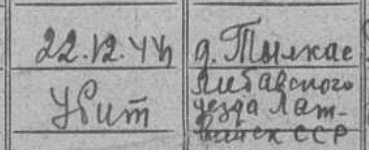 22.12.44
Убит
д. Тылкас
Либавского
уезда Лат-
вийск ССР